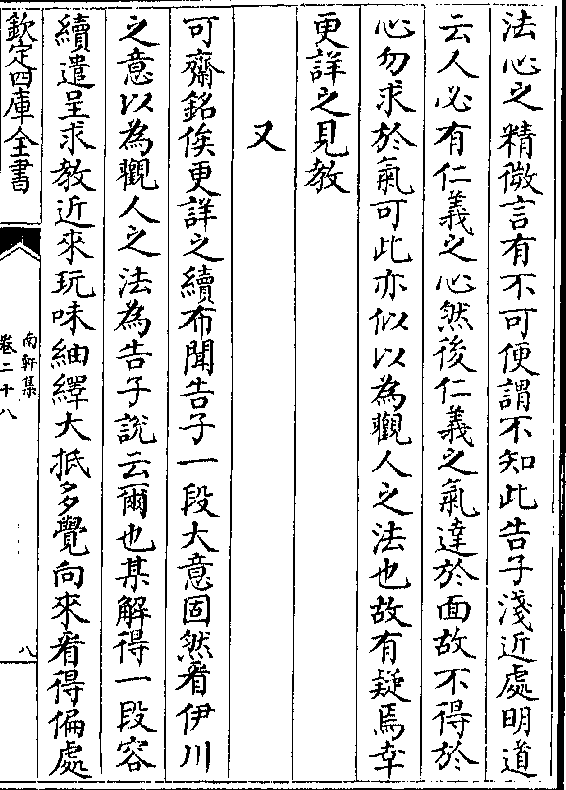 法心之精微言有不可便謂不知此告子淺近處明道
云人必有仁義之心然後仁義之氣達於面故不得於
心勿求於氣可此亦似以為觀人之法也故有疑焉幸
更詳之見教
又
可齋銘俟更詳之續布聞告子一段大意固然看伊川
之意以為觀人之法為告子說云爾也某解得一段容
續遣呈求教近來玩味紬繹大抵多覺向來看得偏處
欽定四庫全書
南軒集
卷二十八
八